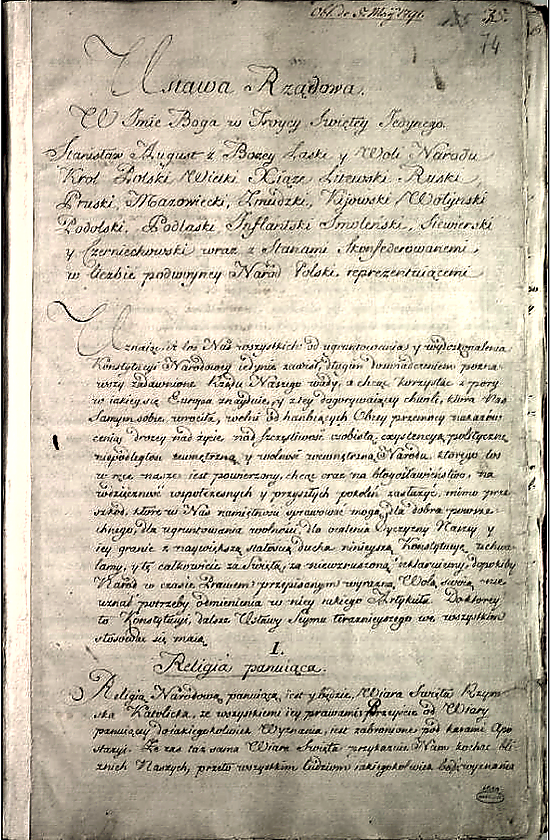 Obl. de 5. Maÿ 1791.
74
Ustawa Rządowa.
W Imie Boga w Troycy Swiętey Jedynego.
Stanisław August z Bozey Łaski y Woli Narodu
Krol Polski Wielki Xiąze Litewski Ruski
Pruski, Mazowiecki, Zmudzki, Kijowski Wołyński
Podolski, Podlaski Inflantski Smoleński, Siewierski
y Czerniechowski wraz z Stanami Skonfederowanemi,
w liczbie podwoyney Narod Polski reprezentuiącemi
Uznaiąc, iż los Nas wszystkich od ugruntowania y wydoskonalenia
Konstytucyi Narodowey iedynie zawisł, długim doswiadczeniem pozna-
wszy zadawnione Rządu Naszego wady, a chcąc korzystać z pory
w iakiey się Europa znayduie, y z tey dogorywaiącey chwili, ktora Nas
Samym sobie wrociła, wolni od hanbiących Obcey przemocy nakazow
ceniąc drozey nad zycie nad szczęśliwość osobistą exystencyą polityczną
niepodległość zewnętrzną y wolność wewnętrzną Narodu, ktorego los
w ręce nasze iest powierzony, chcąc oraz na błogosławienstwo, na
wdzięczność wspołczesnych y przyszłych pokoleń zasłużyć, mimo prze-
szkod, ktore w Nas namiętności sprawować mogą, dla dobra powsze-
chnego, dla ugruntowania wolności, dla ocalenia Oyczyzny Naszey y
iey granic z naywiększą stałością ducha ninieyszą Konstytucyą uchwa-
lamy, y tę całkowicie za świętą, za niewzruszoną deklaruiemy, dopokiby
Narod w czasie Prawem przepisanym wyrazną Wolą swoią nie
uznał potrzeby odmienienia w niey iakiego Artykułu. Do ktorey
to Konstytucyi, dalsze Ustawy Seymu teraznieyszego we wszystkim
stosować się maią.
I.
Religia panuiąca.
Religią Narodową panuiącą iest y będzie, Wiara Swięta Rzym-
ska Katolicka, ze wszystkiemi iey prawami. Przeyście od Wiary
panuiącey do iakiegokolwiek Wyznania, iest zabronione pod karami Apo-
stazyi. Ze zas taz sama Wiara Swięta przykazuie Nam kochać bli-
znich Naszych, przeto wszystkim ludziom iakiegokolwiek bądz wyznania